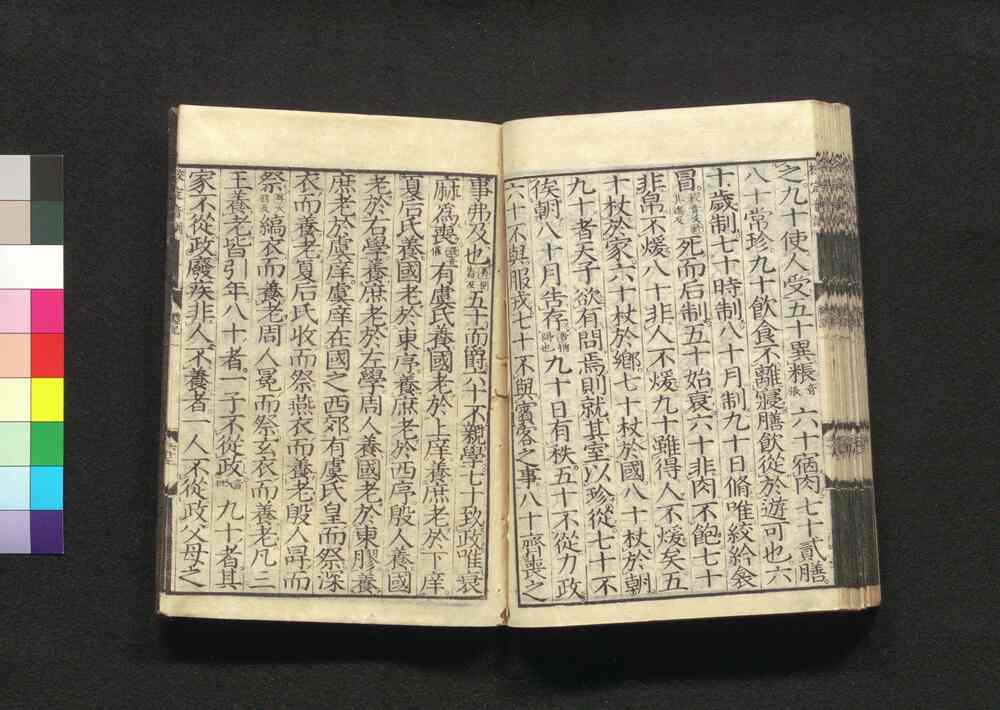 之九十使人受五十異粻音張六十宿肉七十貳膳
八十常珍九十飲食不離寢膳飲從於遊可也六
十歲制七十時制八十月制九十日脩唯絞紟衾
冒死而后制五十始衰六十非肉不飽七十
非帛不煖八十非人不煖九十雖得人不煖矣五
十杖於家六十杖於鄉七十杖於國八十杖於朝
九十者天子欲有問焉則就其室以珍從七十不
俟朝八十月告存九十日有秩五十不從力政
六十不與服戎七十不與賓客之事八十齊喪之
事弗及也五十而爵六十不親學七十致政唯衰
麻爲喪有虞氏養國老於上庠養庶老於下庠
夏后氏養國老於東序養庶老於西序殷人養國
老於右學養庶老於左學周人養國老於東膠養
庶老於虞庠虞庠在國之西郊有虞氏皇而祭深
衣而養老夏后氏收而祭燕衣而養老殷人冔而
祭縞衣而養老周人冕而祭玄衣而養老凡三
王養老皆引年八十者一子不從政九十者其
家不從政廢疾非人不養者一人不從政父母之